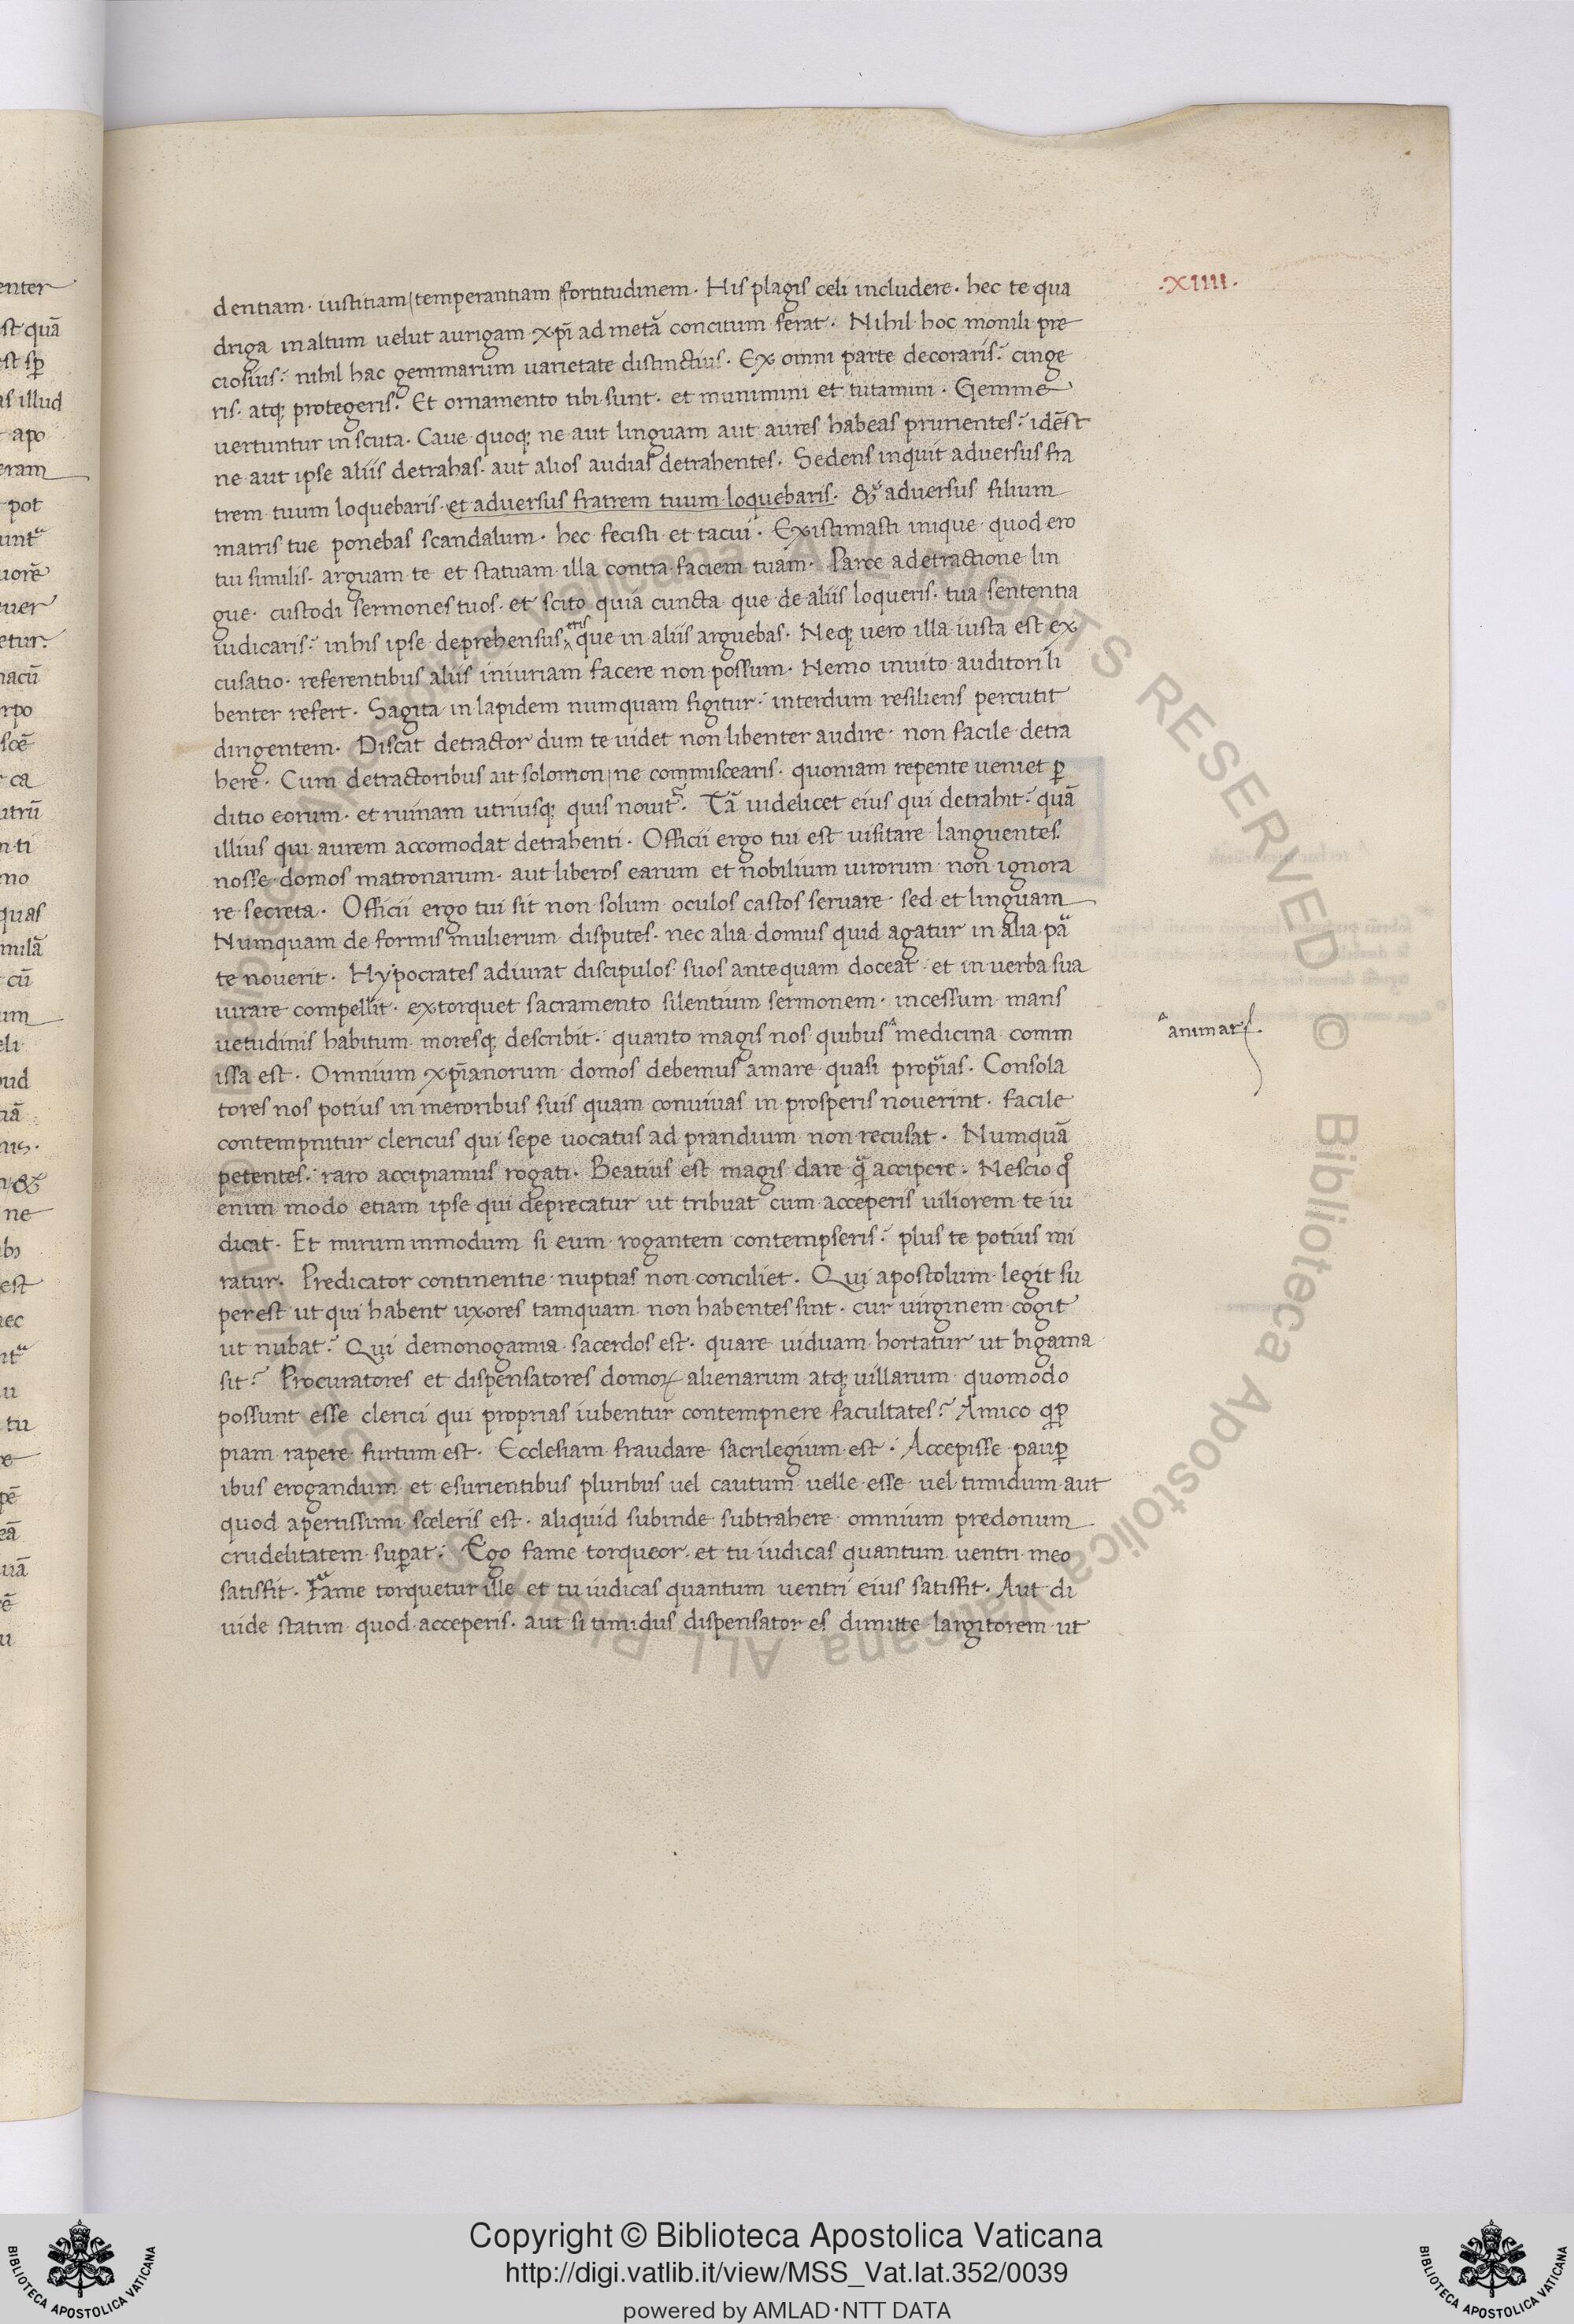 .XIIII.
dentiam. iustitiam/temperantiam/fortitudinem. His plagis celi includere. hec te qua
driga in altum uelut aurigam xp̄i ad metā concitum ferat. Nihil hoc monili pre
ciosius: nihil hac gemmarum uarietate distinctius. Ex omni parte decoraris: cinge
ris. atq; protegeris. Et ornamento tibi sunt. et munimini et tutamini. Gemme
uertuntur in scuta. Caue quoq; ne aut linguam aut aures habeas prurientes: idē st
ne aut ipse aliis detrahas. aut alios audias detrahentes. Sedens inquit adversus fra
trem tuum loquebaris. et adversus fratrem tuum loquebaris. & adversus filium
matris tue ponebas scandalum. hec fecisti et tacui. Existimasti inique quod ero
tui similis. arguam te et statuam illa contra faciem tuam. Parce a detractione lin
gue. custodi sermones tuos. et scito quia cuncta que de aliis loqueris. tua sententia
iudicaris: in his ipse deprehensus ^eris que in aliis arguebas. Neq; vero illa iusta est ex
cusatio. referentibus aliis iniuriam facere non possum. Nemo inuito auditori li
benter refert. Sagita in lapidem numquam figitur: interdum resiliens percutit
dirigentem. Discat detractor dum te uidet non libenter audire. non facile detra
here. Cum detractoribus ait solomon/ne commiscearis. quoniam repente ueniet p̲
ditio eorum. et ruinam utriusq; quis nouit. Tā uidelicet eius qui detrahit: quā
illius qui aurem accomodat detrahenti. Officii ergo tui est uisitare languentes.
nosse domos matronarum. aut liberos earum et nobilium uirorum non ignora
re secreta. Officii ergo tui sit non solum oculos castos seruare. sed et linguam
Numquam de formis mulierum disputes. nec alia domus quid agatur in alia pa
te nouerit. Hypocrates adiurat discipulos suos antequam doceat. et in uerba sua
iurare compellit. extorquet sacramento silentium sermonem. incessum mans
uetudinis habitum moresq; describit. quanto magis nos quibus ^ medicina comm
^animaꝝ.
issa est. Omnium xp̄ianorum domos debemus amare quasi prop̄ias. Consola
tores nos potius in meroribus suis quam conuiuas in prosperis nouerint. facile
contempnitur clericus qui sepe uocatus ad prandium non recusat. Numquā
petentes: raro accipiamus rogati. Beatius est magis dare q̄ accipere. Nescio q̊
enim modo etiam ipse qui deprecatur ut tribuat cum acceperis uiliorem te iu
dicat. Et mirum inmodum si eum rogantem contempseris: plus te potius mi
ratur. Predicator continentie nuptias non conciliet. Qui apostolum legit su
perest ut qui habent uxores tamquam non habentes sint. cur uirginem cogit
ut nubat? Qui demonogamia sacerdos est. quare uiduam hortatur ut bigama
sit? Procuratores et dispensatores domoꝝ alienarum atq; uillarum quomodo
possunt esse clerici qui proprias iubentur contempnere facultates? Amico qp̲
piam rapere furtum est. Ecclesiam fraudare sacrilegium est. Accepisse paup̲
ibus erogandum et esurientibus pluribus uel cautum uelle esse uel timidum aut
quod apertissimi sceleris est. aliquid subinde subtrahere omnium predonum
crudelitatem sup̲at. Ego fame torqueor. et tu iudicas quantum uentri meo
satisfit. Fame torquetur ille et tu iudicas quantum uentri eius satisfit. Aut di
uide statim quod acceperis. aut si timidus dispensator es dimitte largitorem ut
Copyright © Biblioteca Apostolica Vaticana
http://digi.vatlib.it/view/MSS_Vat.lat.352/0039
powered by AMLAD·NTT DATA